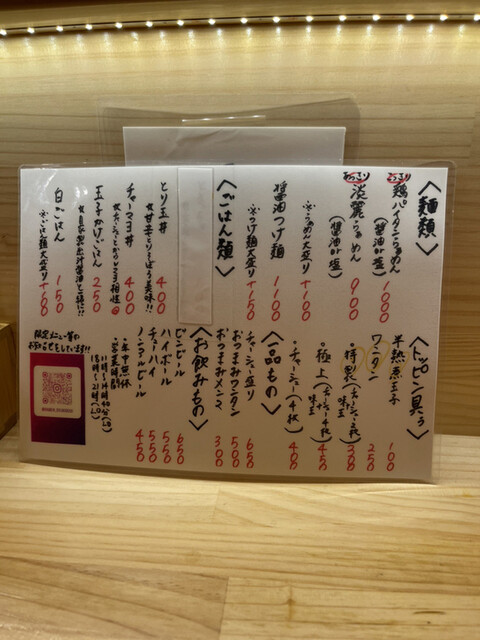 〈麺類〉
あっさり
鶏パイタンらぁめん 1000
(醤油or塩)
あっさり
淡麗らぁめん 900
(醤油or塩)
※らぁめん大盛り +100
醤油つけ麺 1000
※つけ麺大盛り +150
〈ごはん類〉
とり玉丼 400
★甘辛とりそぼろ美味!!
チャーマヨ丼 400
玉子かけごはん 250
白ごはん 150
※ごはん類大盛り +100
〈トッピング〉
半熟煮玉子 100
ワンタン 250
特製(チャーシュー2枚 味玉) 300
極上(チャーシュー4枚 味玉) 450
チャーシュー(4枚) 400
〈一品もの〉
チャーシュー盛り 650
おつまみワンタン 500
おつまみメンマ 300
〈お飲みもの〉
ビンビール 650
ハイボール 550
チューハイ 550
ノンアルビール 450
・年中無休
・営業時間
限定メニュー等の
お知らせもしています!!